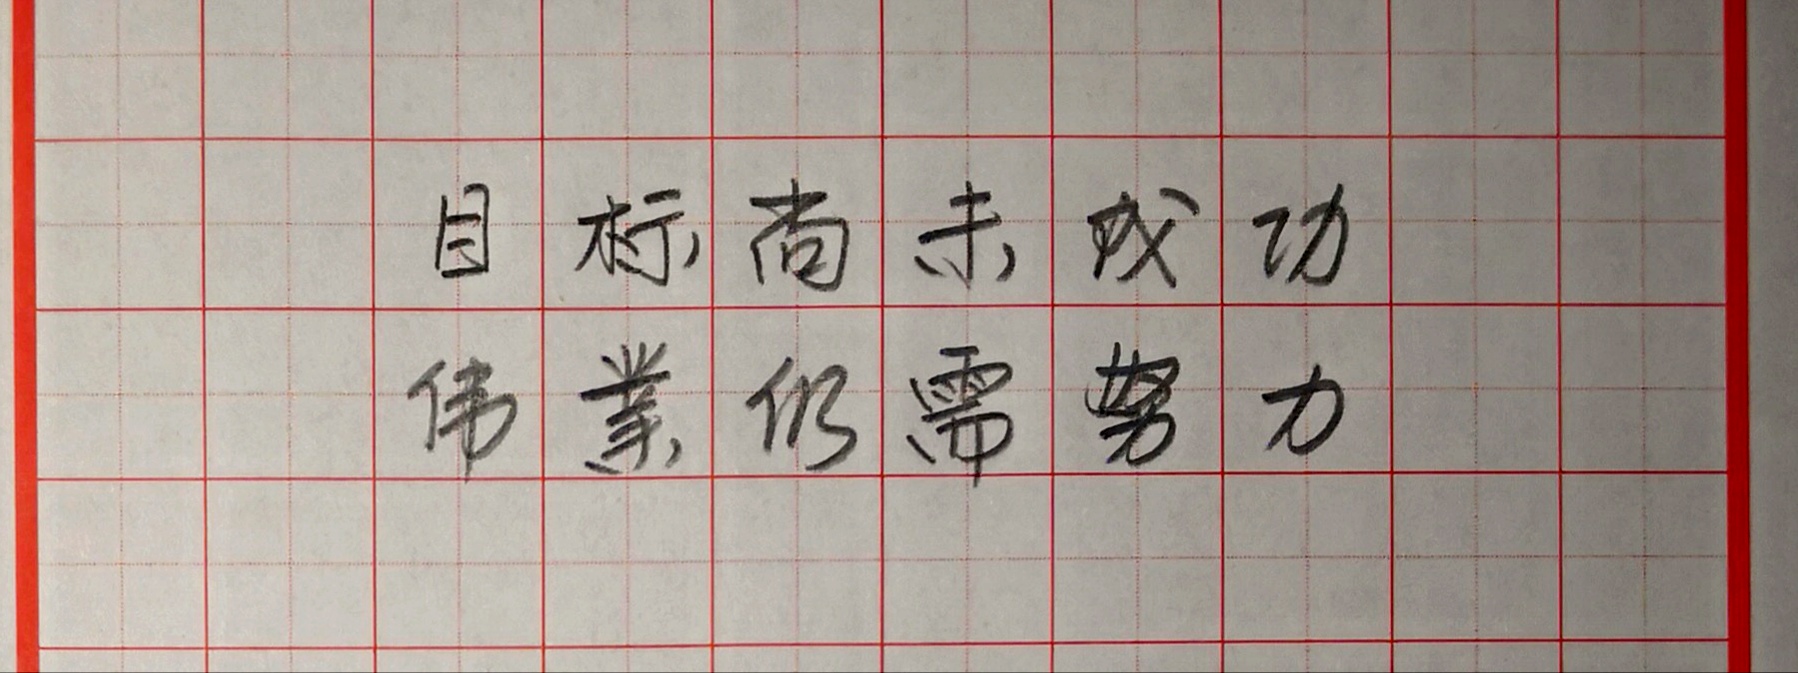 目标尚未成功
伟業仍需努力